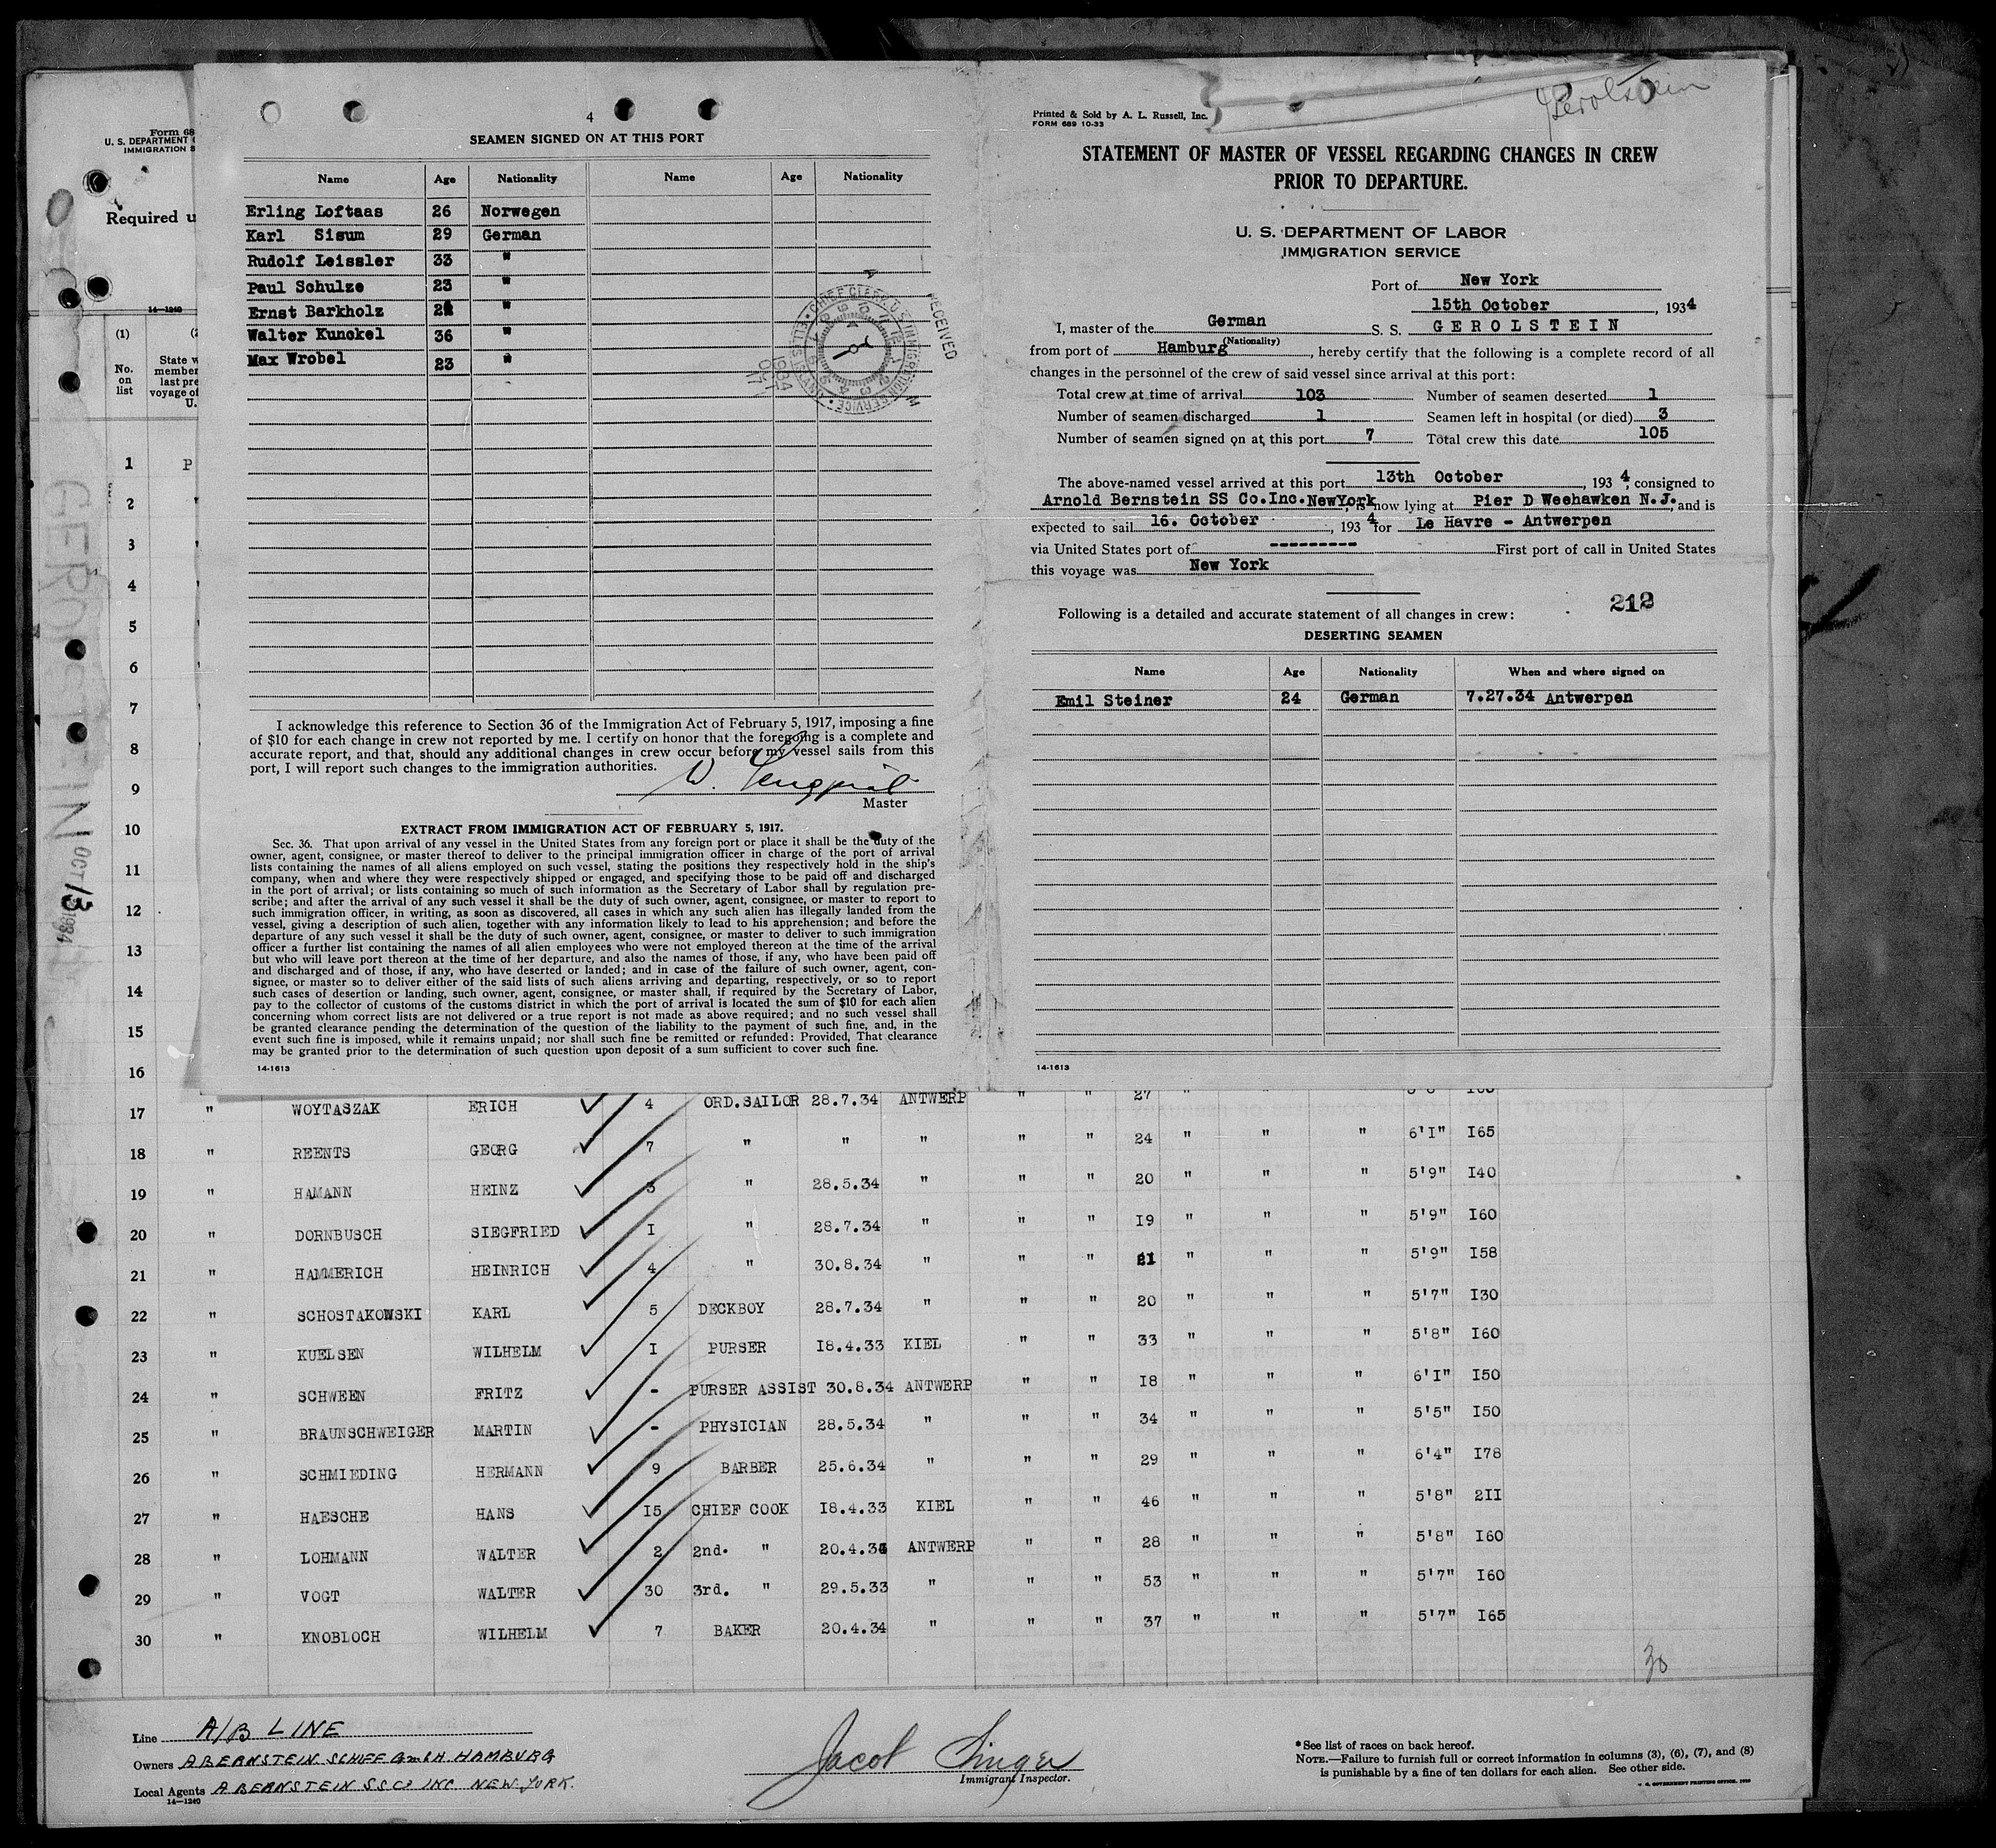 Form 68
U. S. DEPARTMENT
IMMIGRATION S
Required u
14—1240
(1)
No.
on
list
State w
member
last pre
voyage of
U.
1 P
2 "
3 "
4 "
5 "
6 "
7
8
9
10
11
12
13
14
15
16
GEROLSTEIN OCT 13 1934
4
SEAMEN SIGNED ON AT THIS PORT
Name Age Nationality Name Age Nationality
Erling Loftaas 26 Norwegen
Karl Sisum 29 German
Rudolf Leissler 33 "
Paul Schulze 23 "
Ernst Barkholz "
Walter Kunckel 36 "
Max Wrobel 23 "
RECEIVED
CHIEF CLERK, U.S. IMMIGRATION SERVICE
ELLIS ISLAND
1934 OCT 17
I acknowledge this reference to Section 36 of the Immigration Act of February 5, 1917, imposing a fine
of $10 for each change in crew not reported by me. I certify on honor that the foregoing is a complete and
accurate report, and that, should any additional changes in crew occur before my vessel sails from this
port, I will report such changes to the immigration authorities.
W.
Master
EXTRACT FROM IMMIGRATION ACT OF FEBRUARY 5, 1917.
Sec. 36. That upon arrival of any vessel in the United States from any foreign port or place it shall be the duty of the
owner, agent, consignee, or master thereof to deliver to the principal immigration officer in charge of the port of arrival
lists containing the names of all aliens employed on such vessel, stating the positions they respectively hold in the ship's
company, when and where they were respectively shipped or engaged, and specifying those to be paid off and discharged
in the port of arrival; or lists containing so much of such information as the Secretary of Labor shall by regulation pre-
scribe; and after the arrival of any such vessel it shall be the duty of such owner, agent, consignee, or master to report to
such immigration officer, in writing, as soon as discovered, all cases in which any such alien has illegally landed from the
vessel, giving a description of such alien, together with any information likely to lead to his apprehension; and before the
departure of any such vessel it shall be the duty of such owner, agent, consignee, or master to deliver to such immigration
officer a further list containing the names of all alien employees who were not employed thereon at the time of the arrival
but who will leave port thereon at the time of her departure, and also the names of those, if any, who have been paid off
and discharged and of those, if any, who have deserted or landed; and in case of the failure of such owner, agent, con-
signee, or master so to deliver either of the said lists of such aliens arriving and departing, respectively, or so to report
such cases of desertion or landing, such owner, agent, consignee, or master shall, if required by the Secretary of Labor,
pay to the collector of customs of the customs district in which the port of arrival is located the sum of $10 for each alien
concerning whom correct lists are not delivered or a true report is not made as above required; and no such vessel shall
be granted clearance pending the determination of the question of the liability to the payment of such fine, and, in the
event such fine is imposed, while it remains unpaid; nor shall such fine be remitted or refunded: Provided, That clearance
may be granted prior to the determination of such question upon deposit of a sum sufficient to cover such fine.
14-1613
Gerolstein
Printed & Sold by A. L. Russell, Inc.
FORM 689 10-33
STATEMENT OF MASTER OF VESSEL REGARDING CHANGES IN CREW
PRIOR TO DEPARTURE.
U. S. DEPARTMENT OF LABOR
IMMIGRATION SERVICE
Port of New York
15th October, 1934
I, master of the German S. S. GEROLSTEIN
(Nationality)
from port of Hamburg, hereby certify that the following is a complete record of all
changes in the personnel of the crew of said vessel since arrival at this port:
Total crew at time of arrival 103 Number of seamen deserted 1
Number of seamen discharged 1 Seamen left in hospital (or died) 3
Number of seamen signed on at this port 7 Total crew this date 105
The above-named vessel arrived at this port 13th October, 1934, consigned to
Arnold Bernstein SS Co.Inc.NewYork, is now lying at Pier D Weehawken N.J., and is
expected to sail 16. October, 1934 for Le Havre - Antwerpen
via United States port of --------- First port of call in United States
this voyage was New York
212
Following is a detailed and accurate statement of all changes in crew:
DESERTING SEAMEN
Name Age Nationality When and where signed on
Emil Steiner 24 German 7.27.34 Antwerpen
14-1613
17 " WOYTASZAK ERICH ✓ 4 ORD.SAILOR 28.7.34 ANTWERP " " 27 " " "
18 " REENTS GEORG ✓ 7 " " " " " 24 " " " 6'I" I65
19 " HAMANN HEINZ ✓ 3 " 28.5.34 " " " 20 " " " 5'9" I40
20 " DORNBUSCH SIEGFRIED ✓ I " 28.7.34 " " " I9 " " " 5'9" I60
21 " HAMMERICH HEINRICH ✓ 4 " 30.8.34 " " " 21 " " " 5'9" I58
22 " SCHOSTAKOWSKI KARL ✓ 5 DECKBOY 28.7.34 " " " 20 " " " 5'7" I30
23 " KUELSEN WILHELM ✓ I PURSER I8.4.33 KIEL " " 33 " " " 5'8" I60
24 " SCHWEEN FRITZ ✓ - PURSER ASSIST 30.8.34 ANTWERP " " I8 " " " 6'I" I50
25 " BRAUNSCHWEIGER MARTIN ✓ - PHYSICIAN 28.5.34 " " " 34 " " " 5'5" I50
26 " SCHMIEDING HERMANN ✓ 9 BARBER 25.6.34 " " " 29 " " " 6'4" I78
27 " HAESCHE HANS ✓ I5 CHIEF COOK I8.4.33 KIEL " " 46 " " " 5'8" 2II
28 " LOHMANN WALTER ✓ 2 2nd. " 20.4.34 ANTWERP " " 28 " " " 5'8" I60
29 " VOGT WALTER ✓ 30 3rd. " 29.5.33 " " " 53 " " " 5'7" I60
30 " KNOBLOCH WILHELM ✓ 7 BAKER 20.4.34 " " " 37 " " " 5'7" I65
30
Line A/B LINE
Owners A BERNSTEIN SCHIFF GmbH. HAMBURG
Local Agents A BERNSTEIN SS Co INC NEW YORK.
14—1240
Jacob Singer
Immigrant Inspector.
*See list of races on back hereof.
NOTE.—Failure to furnish full or correct information in columns (3), (6), (7), and (8)
is punishable by a fine of ten dollars for each alien. See other side.
GOVERNMENT PRINTING OFFICE